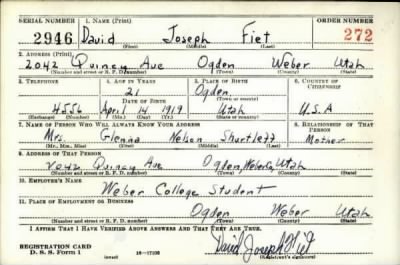 SERIAL NUMBER 1. NAME (Print) ORDER NUMBER
2946 David Joseph Fiet 272
(First) (Middle) (Last)
2. ADDRESS (Print)
2042 Quincy Ave Ogden Weber Utah
(Number and street or R. F. D. number) (Town) (County) (State)
3. TELEPHONE 4. AGE IN YEARS 5. PLACE OF BIRTH 6. COUNTRY OF CITIZENSHIP
21 Ogden
DATE OF BIRTH (Town or county)
4556 April 14 1919 Utah U.S.A
(Exchange) (Number) (Mo.) (Day) (Yr.) (State or country)
7. NAME OF PERSON WHO WILL ALWAYS KNOW YOUR ADDRESS 8. RELATIONSHIP OF THAT PERSON
Mrs. Glenna Nelson Shurtleff Mother
(Mr., Mrs., Miss) (First) (Middle) (Last)
9. ADDRESS OF THAT PERSON
2042 Quincy Ave Ogden, Weber Co, Utah
(Number and street or R. F. D. number) (Town) (County) (State)
10. EMPLOYER'S NAME
Weber College Student
11. PLACE OF EMPLOYMENT OR BUSINESS
Ogden Weber Utah
(Number and street or R. F. D. number) (Town) (County) (State)
I AFFIRM THAT I HAVE VERIFIED ABOVE ANSWERS AND THAT THEY ARE TRUE.
REGISTRATION CARD
D. S. S. Form 1 (over) 16—17105 David Joseph Fiet
(Registrant's signature)